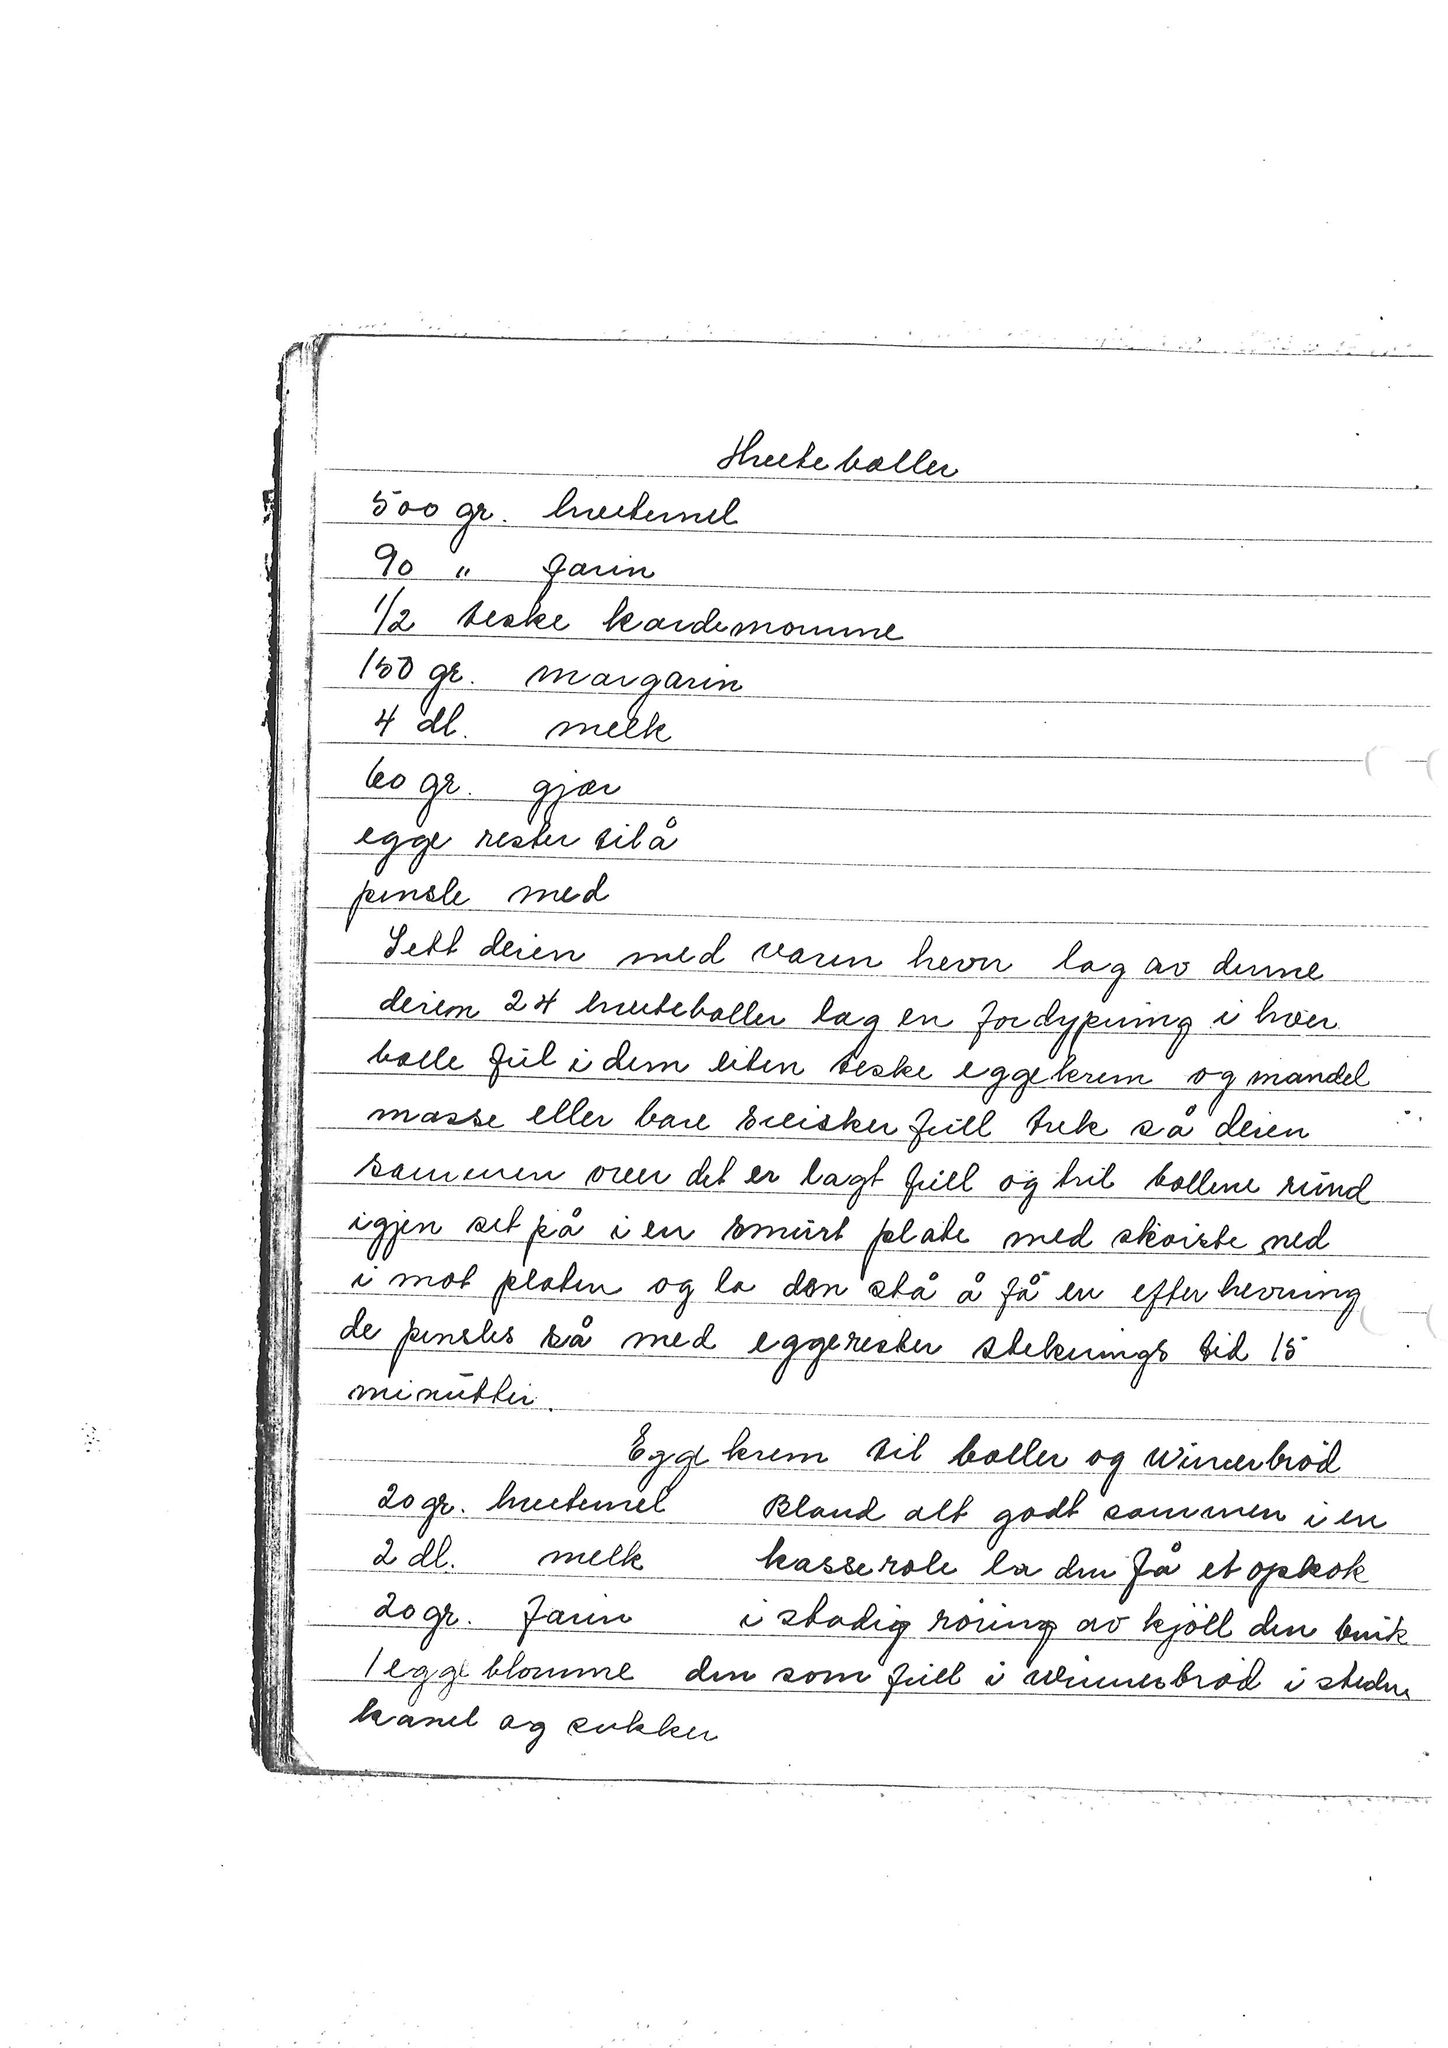 Hveteboller
500 gr. hvetemel
90 " farin
1/2 teske kardemomme
150 gr. margarin
4 dl. melk
60 gr. gjær
egge rester til å
pensle med
Sett deien med varm hevn lag av denne
deiem 24 hveteboller lag en fordypning i hver
bolle fül i dem liten teske eggekrem og mandel
masse eller bare sveisker füll trek så deien
sammen over det er lagt füll og tril bollene ründ
igjen set på i en smürt plate med skøiste ned
i mot platen og la den stå å få en efter hevning
de pensles så med eggerester steknings tid 15
minütter.
Egge krem til boller og Winerbröd
20 gr. hvetemel Bland alt godt sammen i en
2 dl. melk kasserole la den få et opkok
20 gr. farin i stadig röring av kjöll den brük
1 egge blomme den som füll i winnerbröd i steden
kanel og sukker